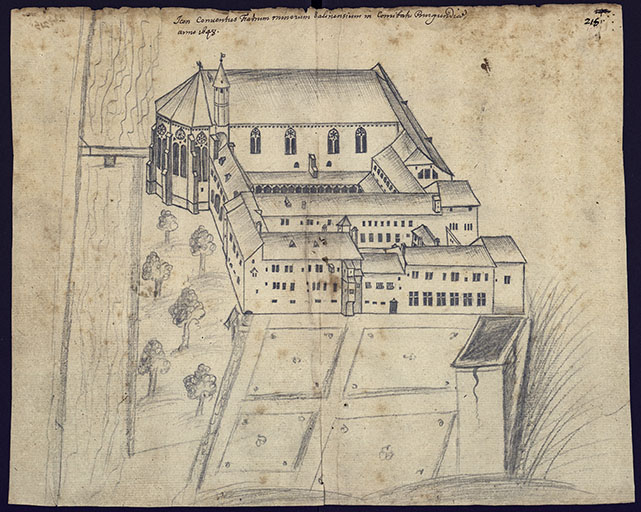 Icon Conventus Fratrum minorum Salinensium in Comitatu Burgundiae
anno 1648.
215